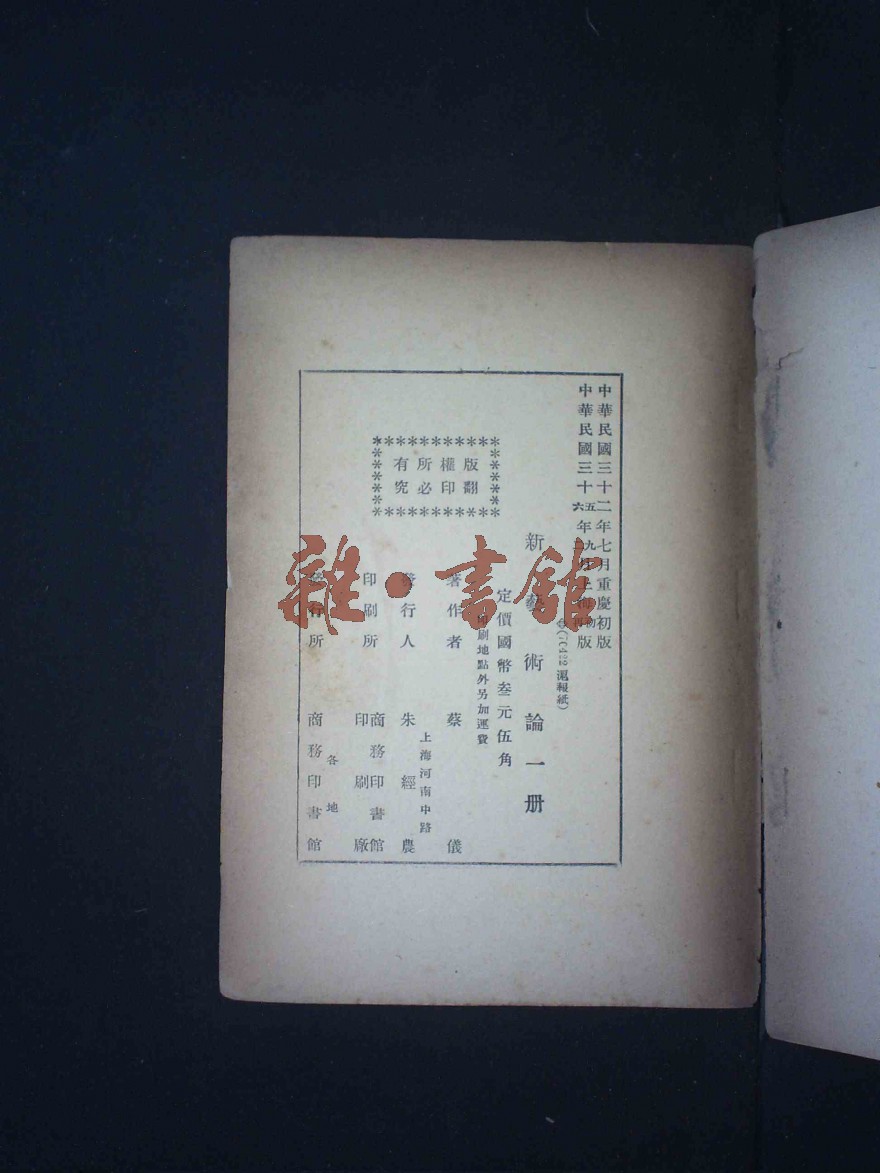 中華民國三十二年七月重慶初版
中華民國三十五六年九月上海初版
(70422滬報紙)
新藝術論一册
定價國幣叁元伍角
印刷地點外另加運費
版權所有
翻印必究
著作者 蔡儀
發行人 朱經農
上海河南中路
印刷所 商務印書館
印刷廠
發行所 商務印書館
各地
雜·書館